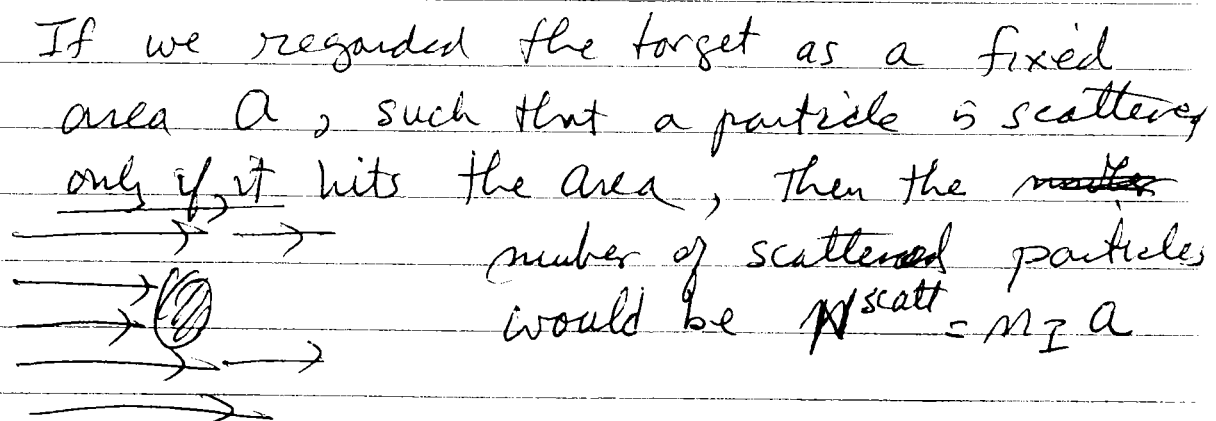 If we regarded the target as a fixed
area a, such that a particle is scattered
only if it hits the area, Then the
number of scattered particles
would be N^scatt = n_I a